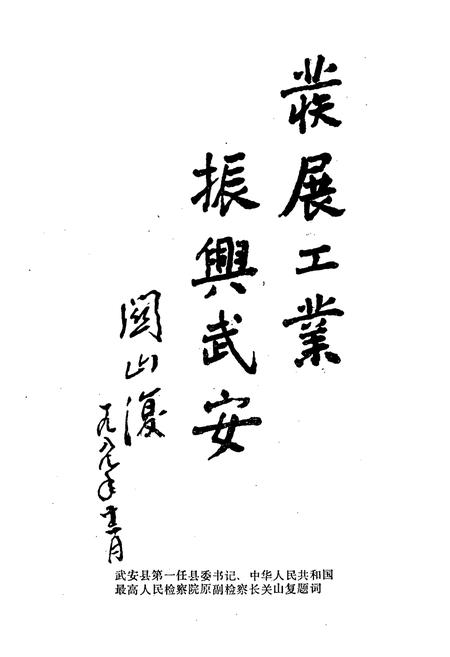 發展工業
振興武安
關山復
一九八七年十二月
武安县第一任县委书记、中华人民共和国
最高人民检察院原副检察长关山复题词